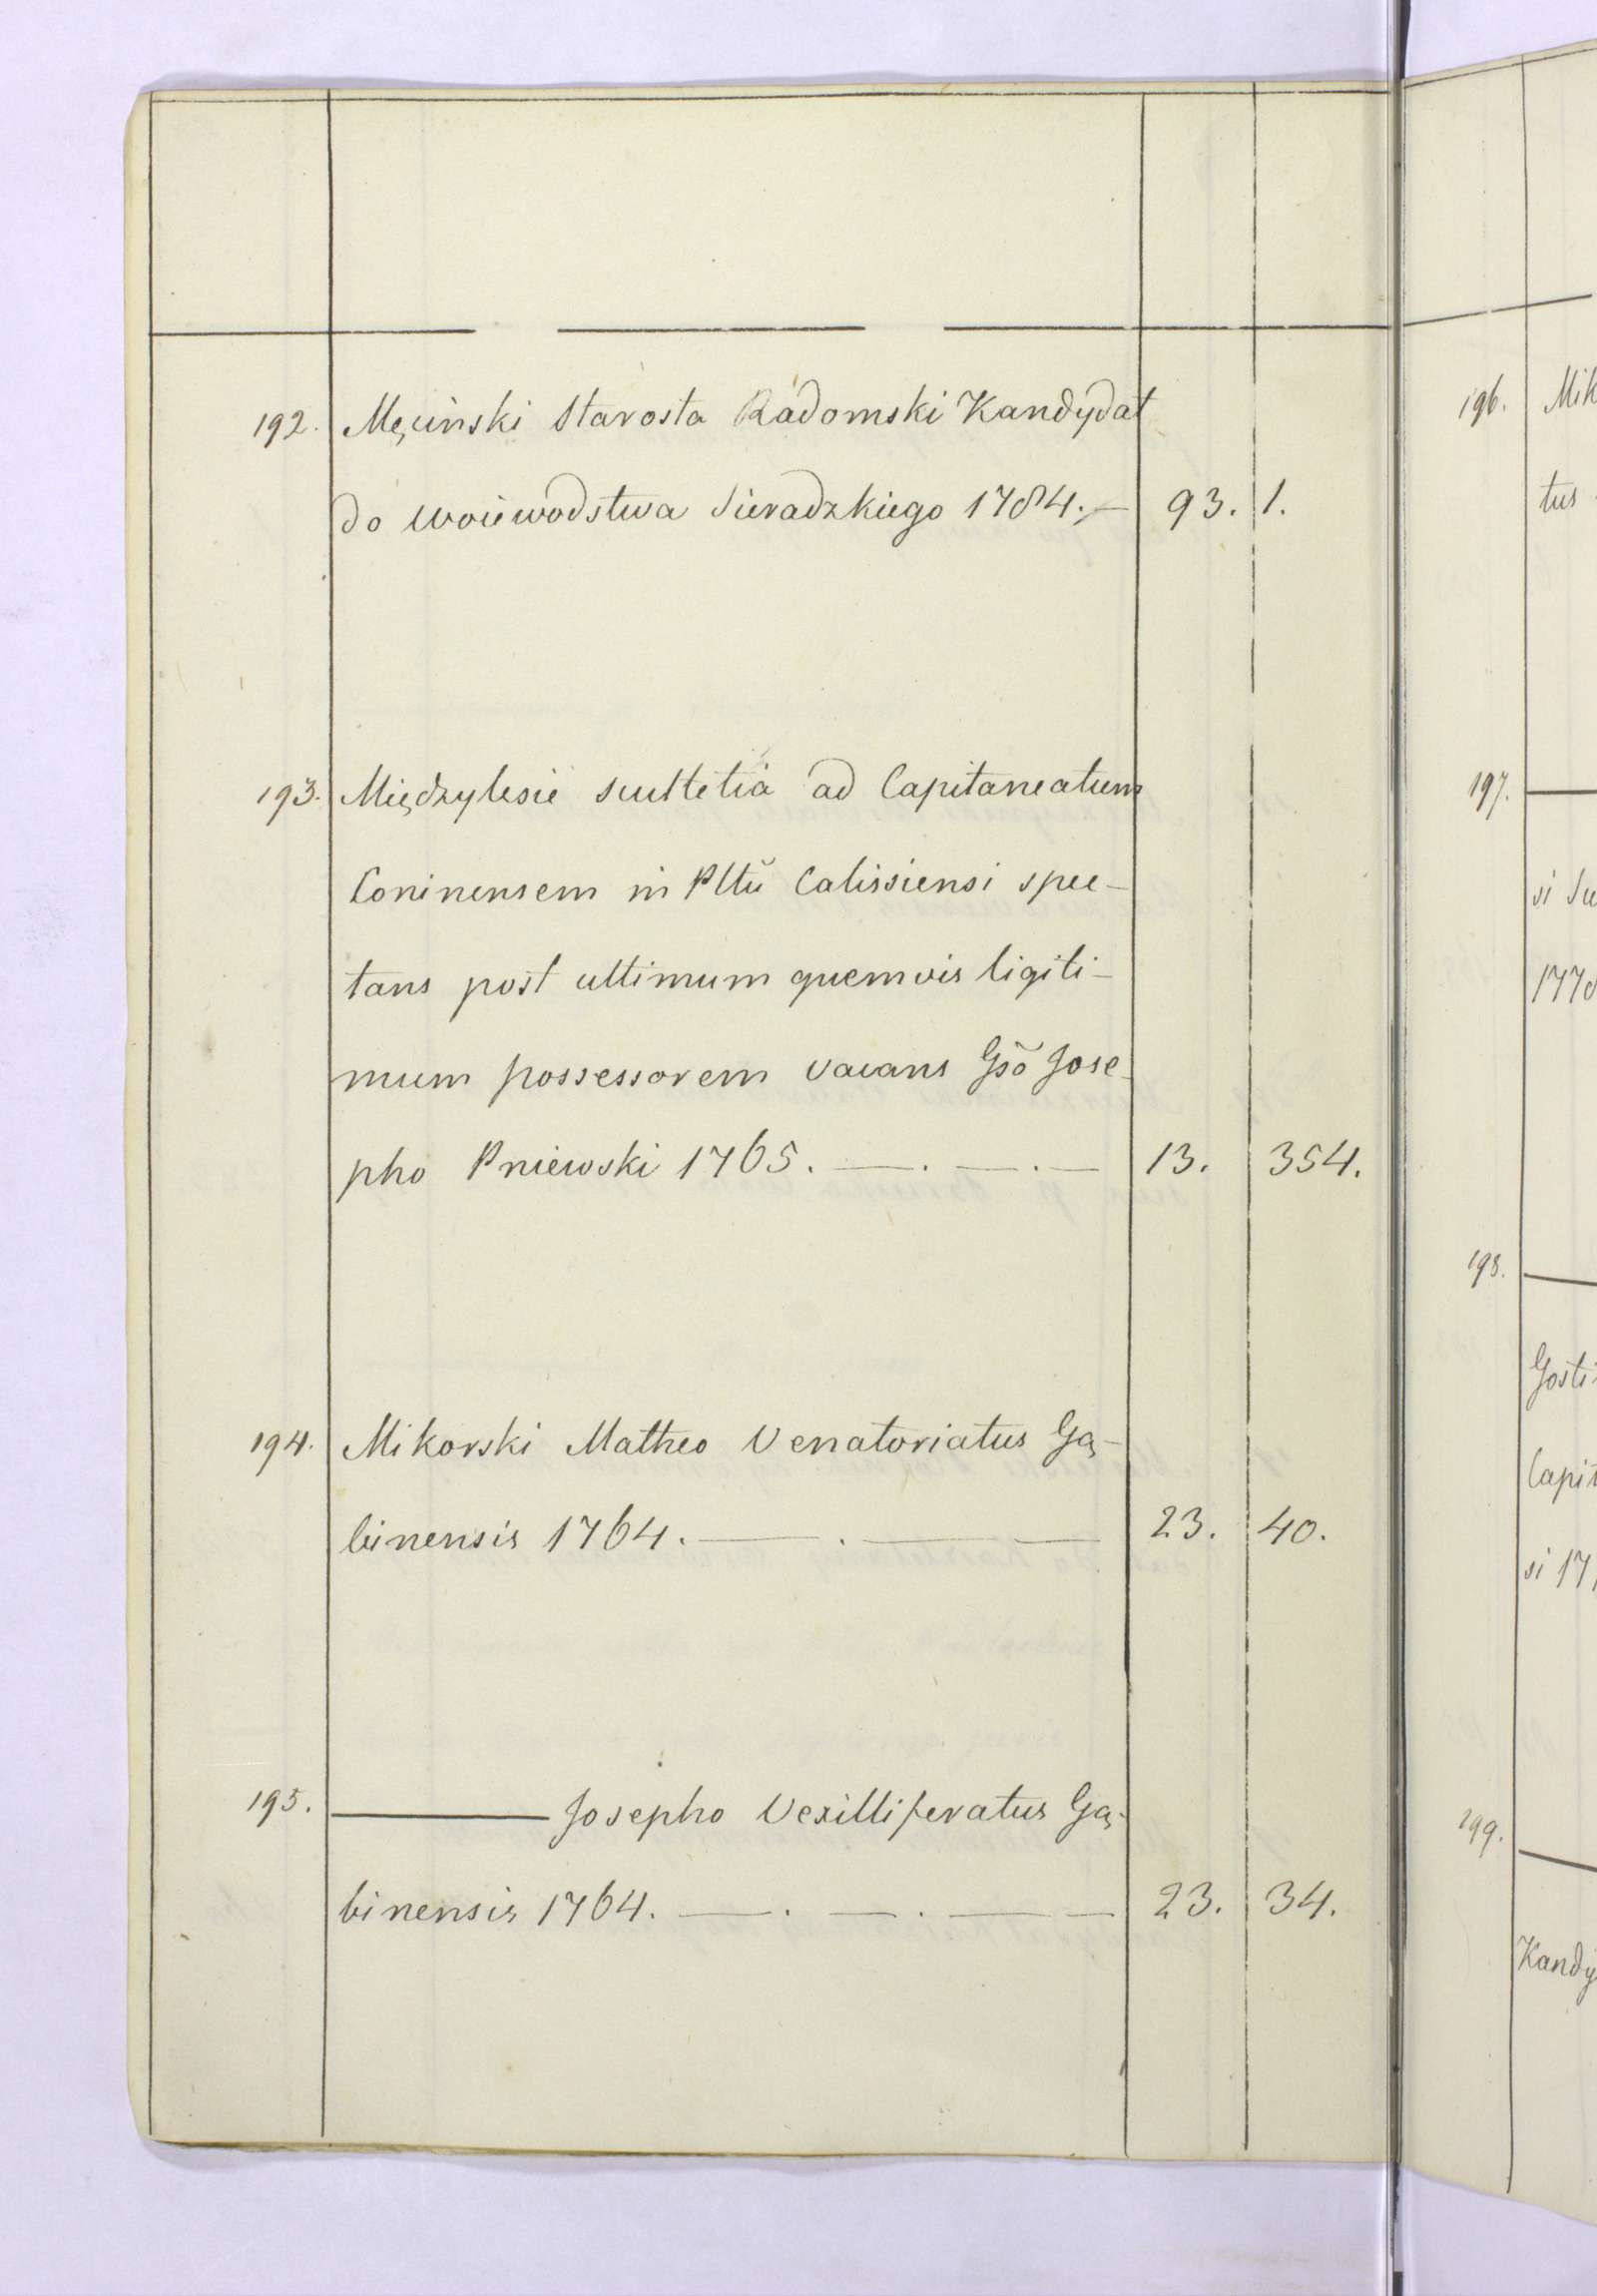 192. Męcinski Starosta Radomski Kandydat
do woiewodstwa Sieradzkiego 1784. — 93. 1.
193. Międzylesie scultetia ad Capitaneatum
Coninensem in Pltũ Calissiensi spec-
tans post ultimum quemvis ligiti-
mum possessorem vacans Gsõ Jose-
pho Pniewski 1765. —. —. — 13. 354.
194. Mikorski Matheo Venatoriatus Gą-
binensis 1764. —. — — 23. 40.
195. ——— Josepho Vexilliferatus Gą-
binensis 1764. —. —. — — 23. 34.
196. Mik
tus
197. —
si Su
1770
198. —
Gosti
Capit
si 17
199. —
Kandy